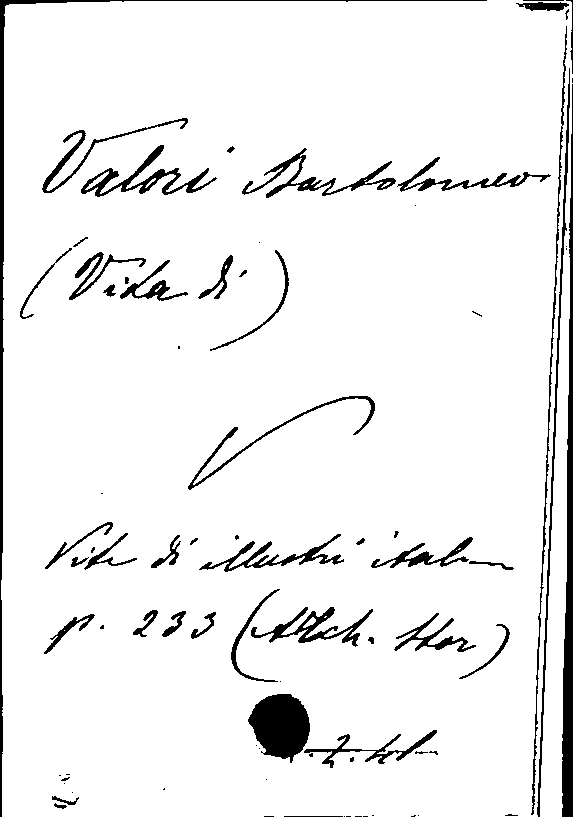 Valori Bartolomeo
(Vita di)
V
Vite di illustri ital
p. 233 (Arch. Stor)